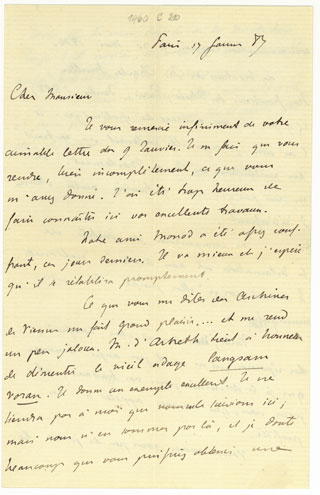 1960 C 20
Paris 17 Janvier 87
Cher Monsieur
Je vous remercie infiniment de votre
aimable lettre du 9 Janvier. Je ne fais que vous
rendre, bien incomplètement, ce que vous
m'avez donné. J'ai été trop heureux de
faire connaître ici vos excellents travaux.
Notre ami Monod a été assez souf-
frant, ces jours derniers. Il va mieux et j'espère
qu'il se rétablira promptement.
Ce que vous me dites des Archives
de Vienne me fait grand plaisir... et me rend
un peu jaloux. M. d'Arneth tient à honneur
de démentir le vieil adage langsam
voran. Il donne un exemple excellent. Il ne
tiendra pas à moi que nous ne suivions ici;
mais nous n'en sommes pas là, et je doute
beaucoup que vous puissiez obtenir une